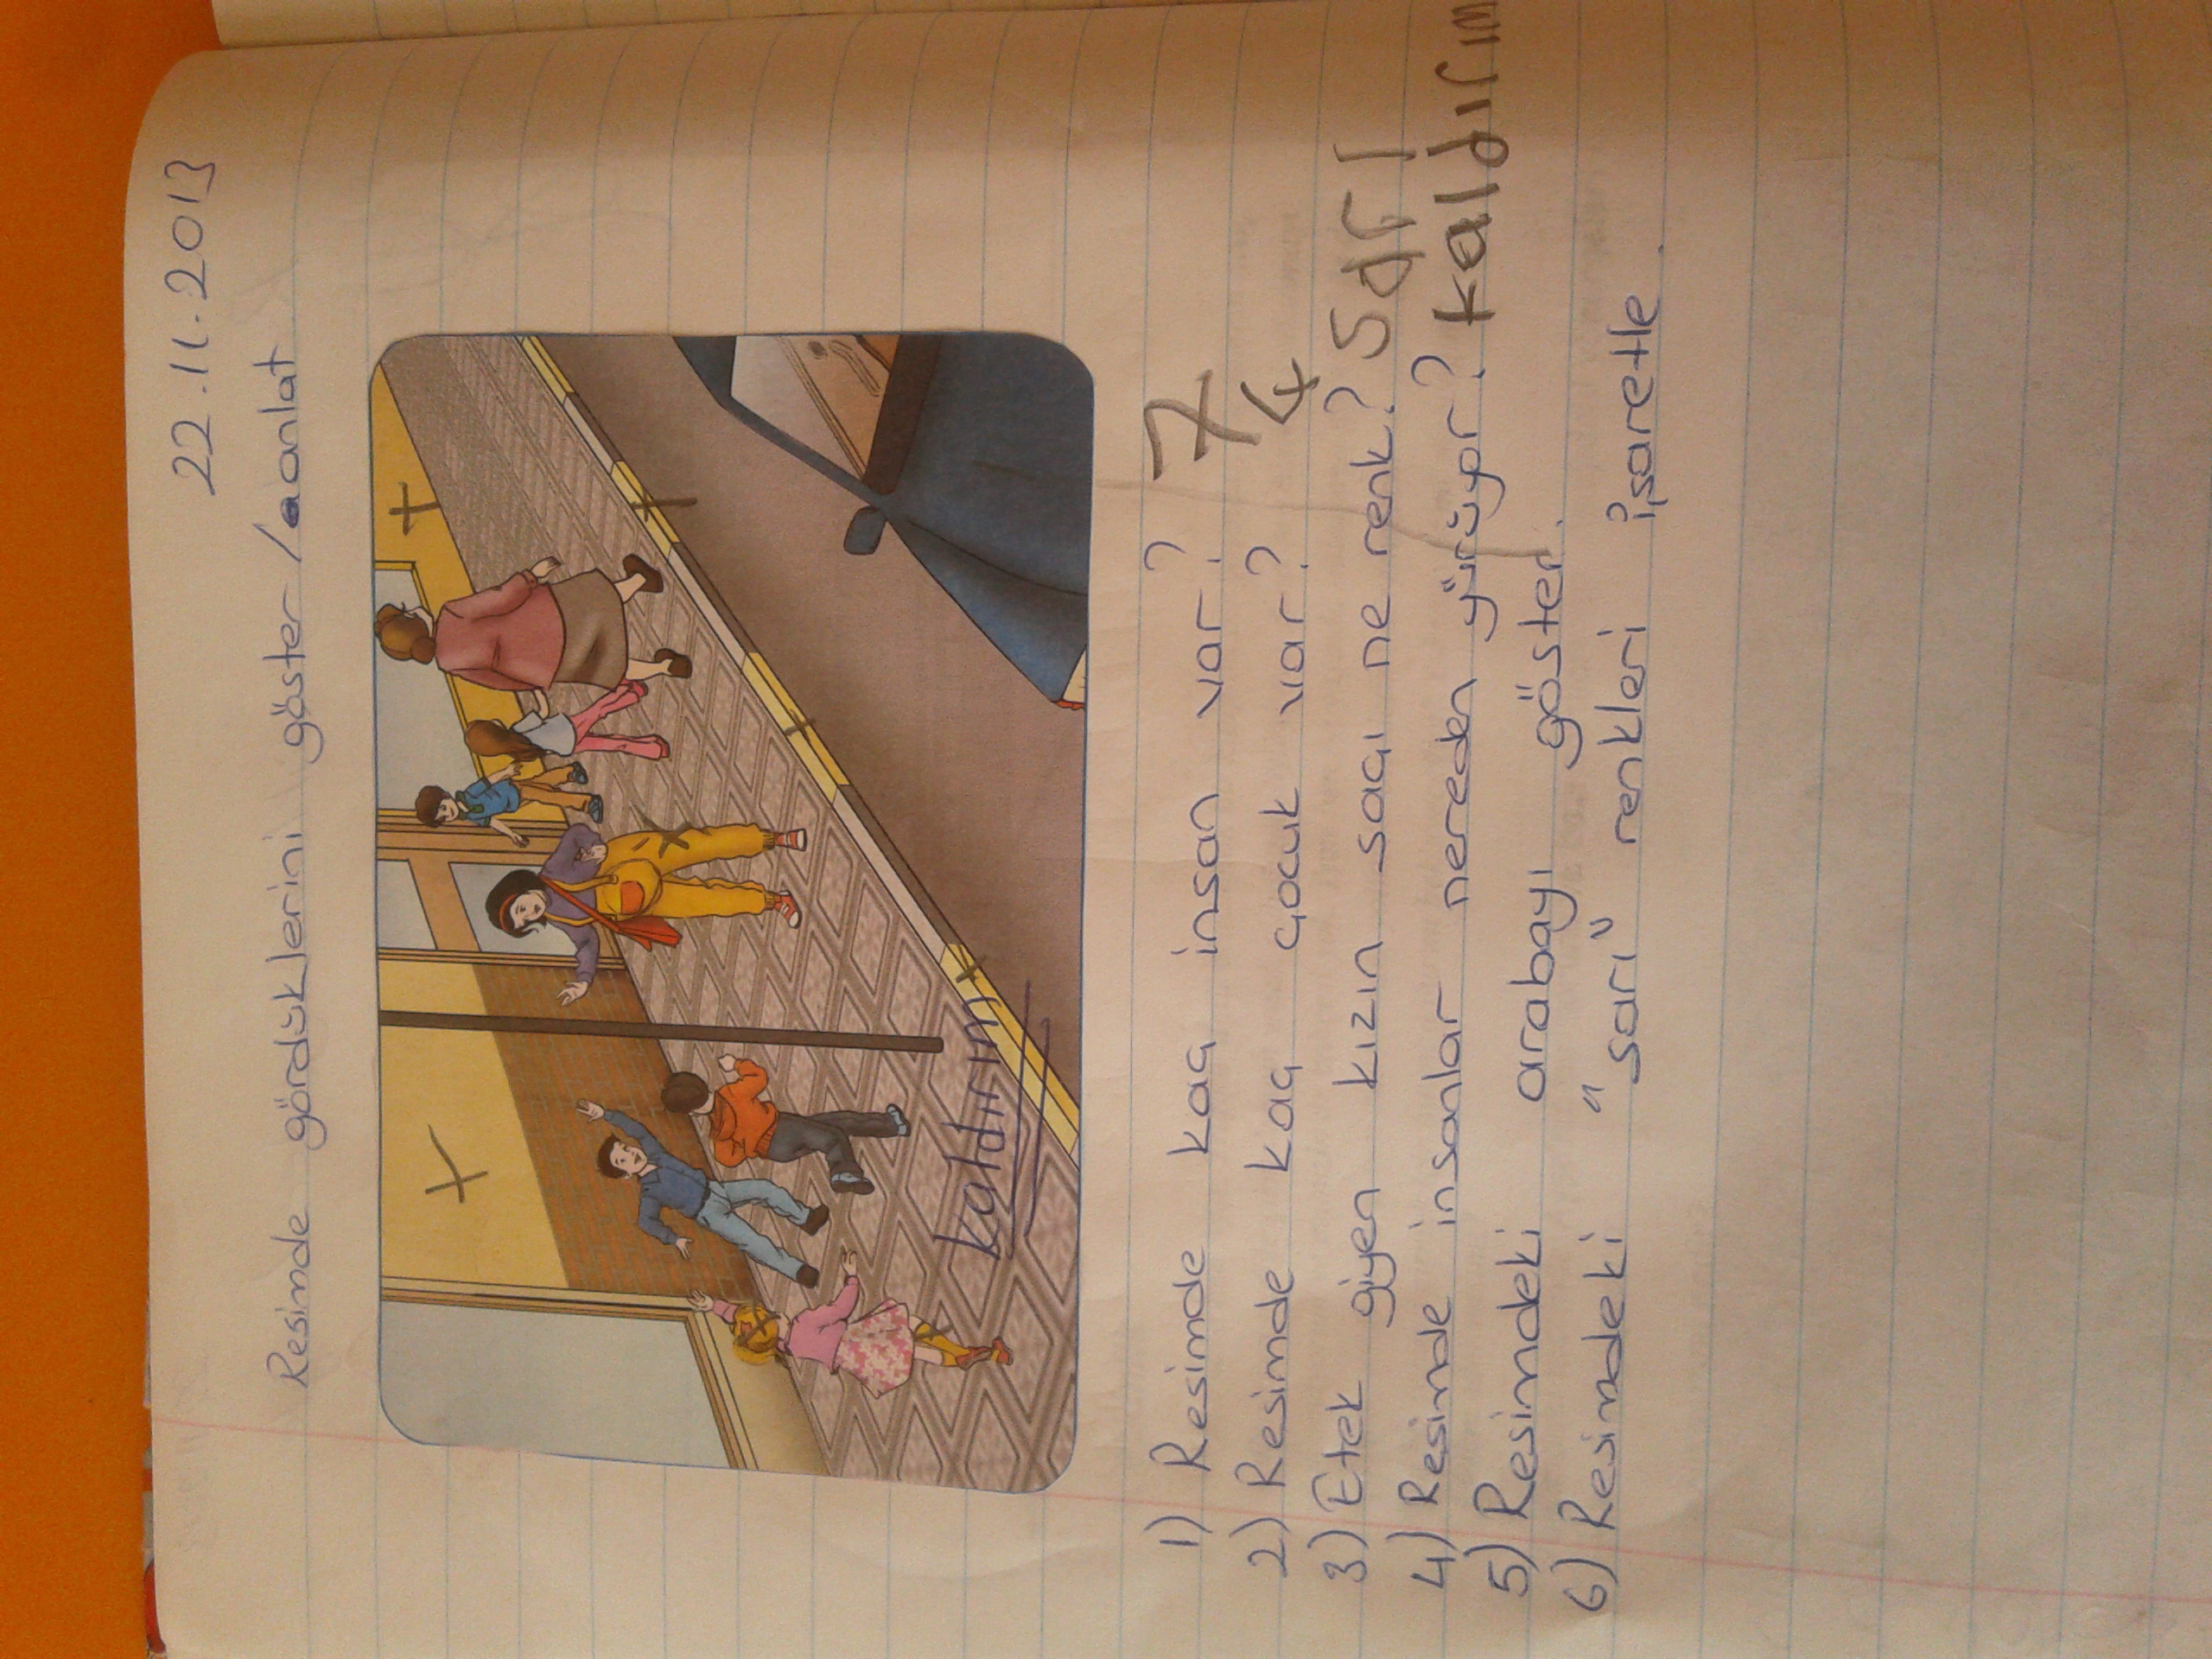 22.11.2013
Resimde gördüklerini göster / anlat
kaldırım
1) Resimde kaç insan var? 7
2) Resimde kaç çocuk var? 4
3) Etek giyen kızın saçı ne renk? Sarı
4) Resimde insanlar nereden yürüyor? kaldırım
5) Resimdeki arabayı göster.
6) Resimdeki "sarı" renkleri işaretle.